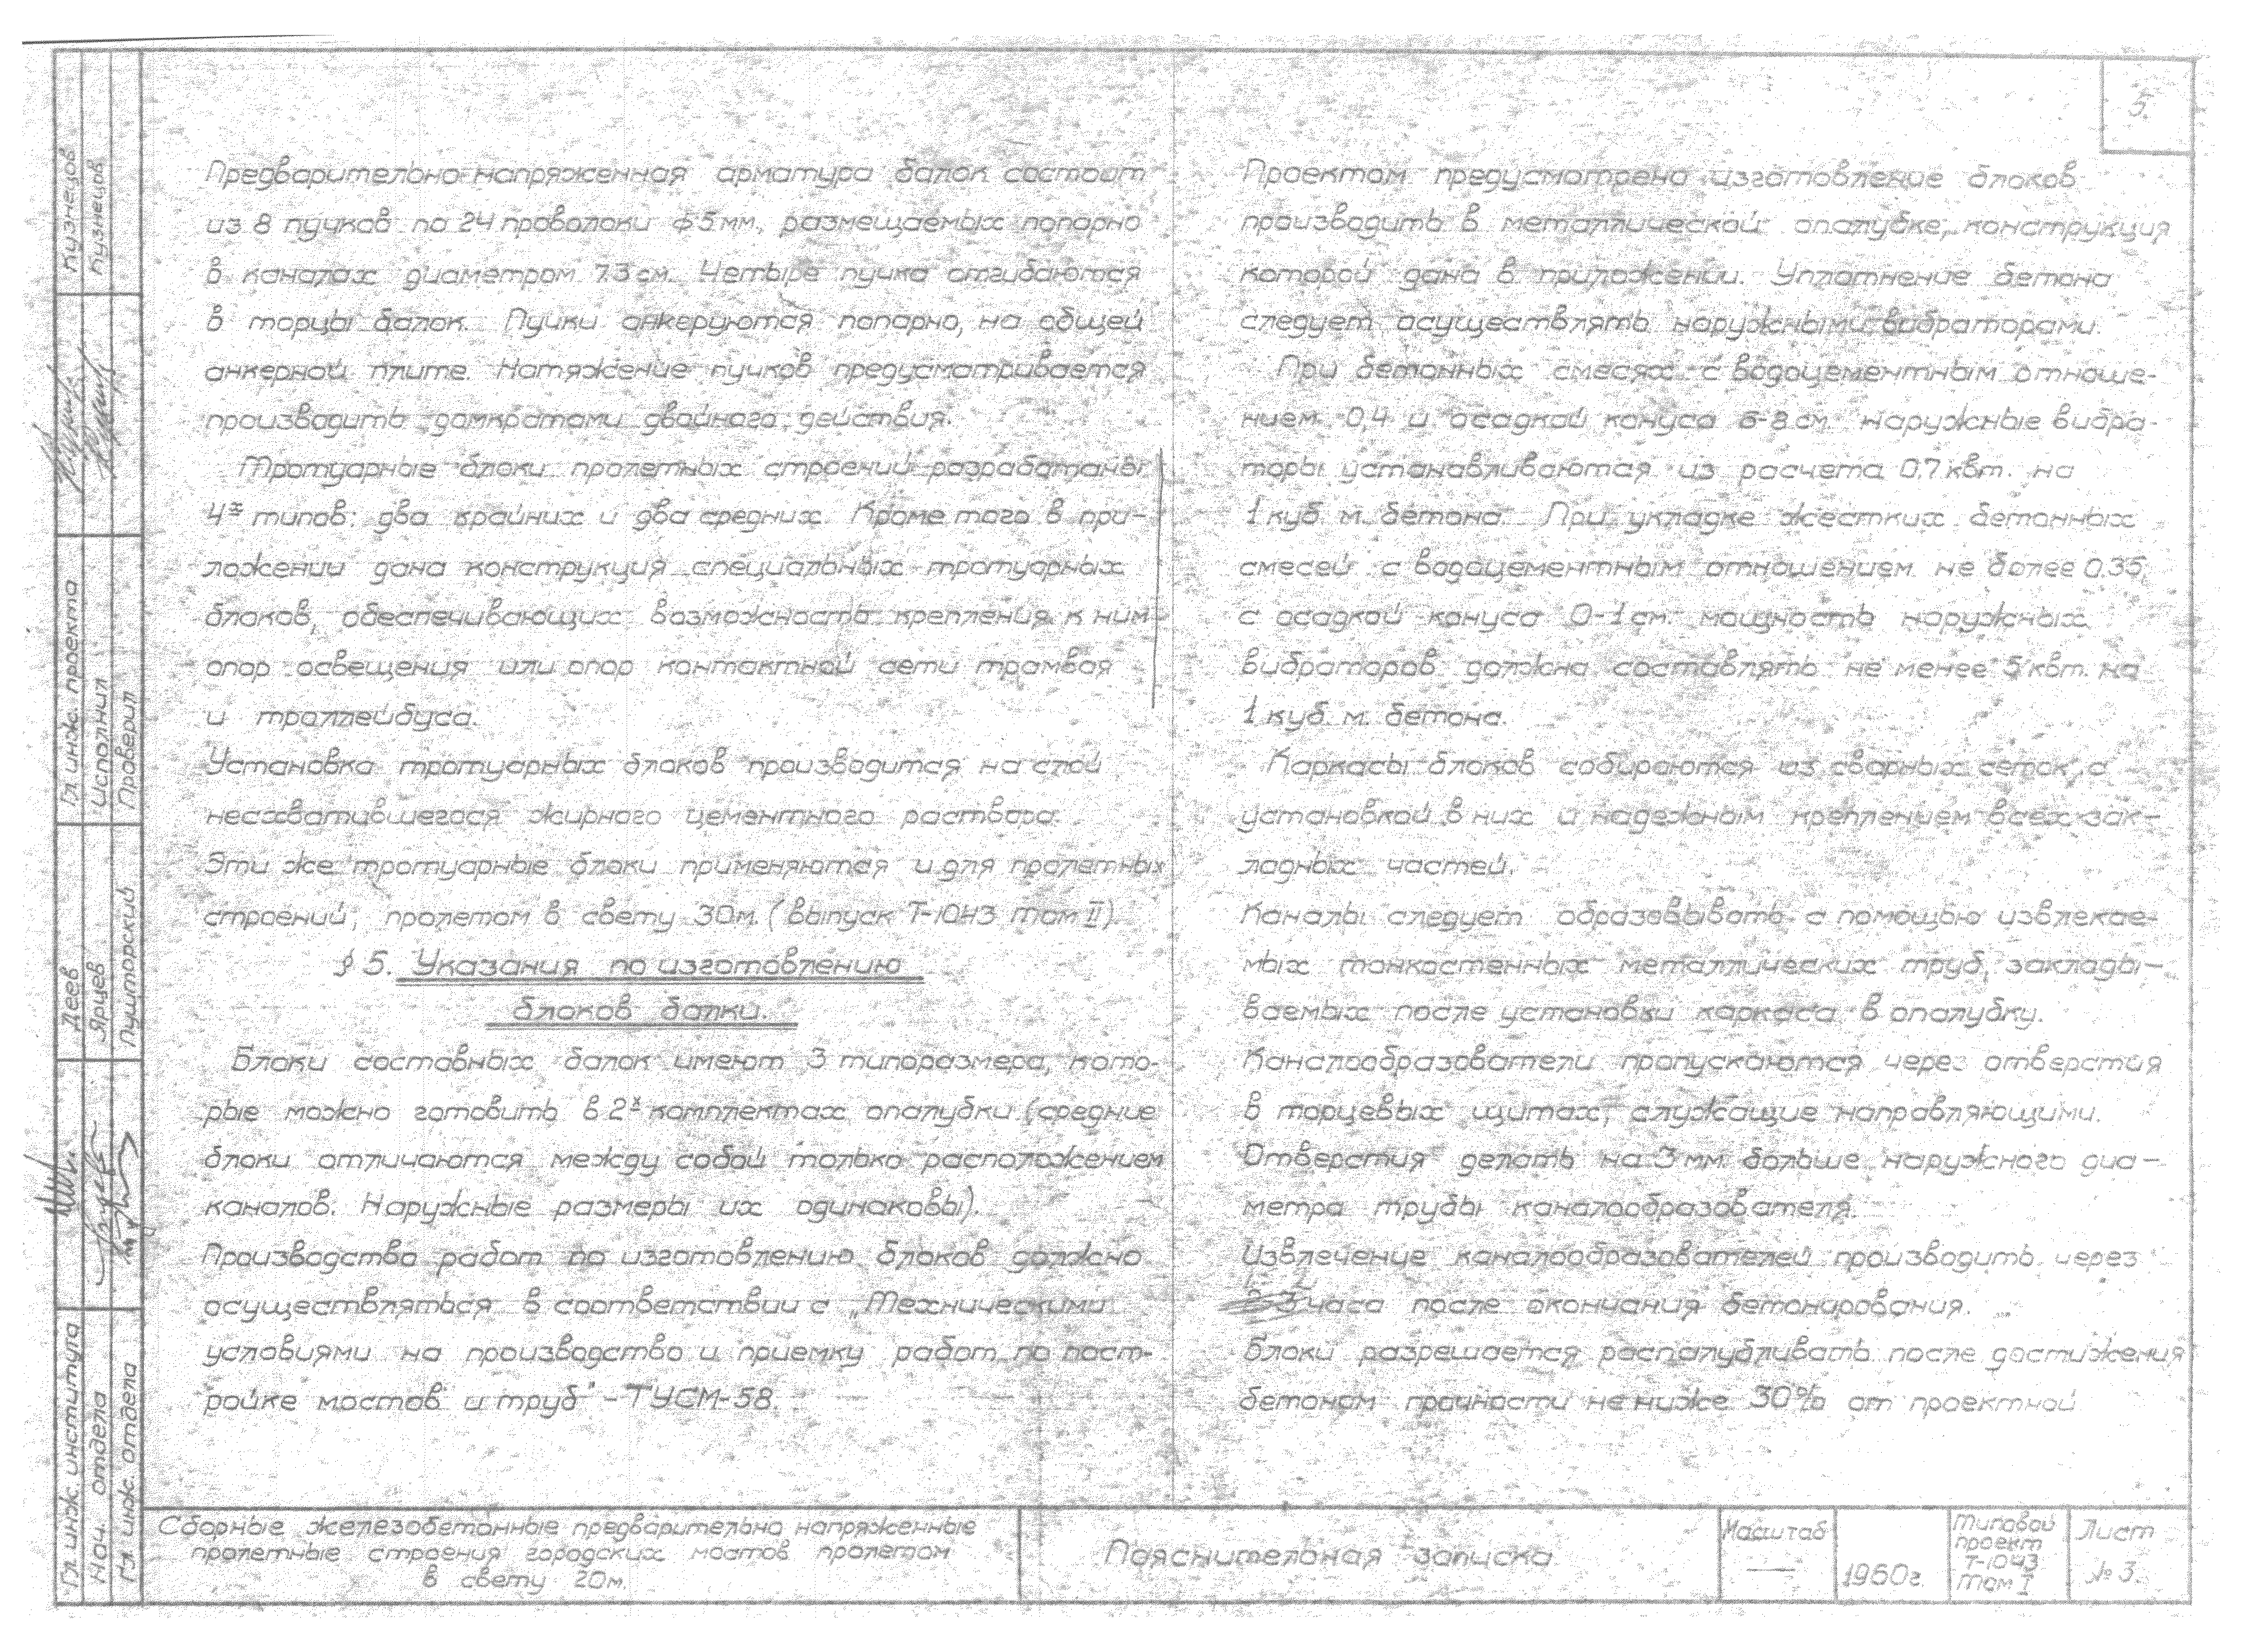 5.
Предварительно-напряженная арматура балок состоит
из 8 пучков по 24 проволоки ф 5 мм, размещаемых попарно
в каналах диаметром 7.3 см. Четыре пучка отгибаются
в торцы балок. Пучки анкеруются попарно, на общей
анкерной плите. Натяжение пучков предусматривается
производить домкратами двойного действия.
Тротуарные блоки пролетных строений разработаны
4х типов: два крайних и два средних. Кроме того в при-
ложении дана конструкция специальных тротуарных
блоков, обеспечивающих возможность крепления к ним
опор освещения или опор контактной сети трамвая
и троллейбуса.
Установка тротуарных блоков производится на слой
несхватившегося жирного цементного раствора.
Эти же тротуарные блоки применяются и для пролетных
строений, пролетом в свету 30м. (выпуск Т-10НЗ том II).
§ 5. Указания по изготовлению
блоков балки.
Блоки составных балок имеют 3 типоразмера, кото-
рые можно готовить в 2х комплектах опалубки (средние
блоки отличаются между собой только расположением
каналов. Наружные размеры их одинаковы).
Производство работ по изготовлению блоков должно
осуществляться в соответствии с „Техническими
условиями на производство и приемку работ по пост-
ройке мостов и труб" – ТУСМ-58.
Проектом предусмотрено изготовление блоков
производить в металлической опалубке, конструкция
которой дана в приложении. Уплотнение бетона
следует осуществлять наружными вибраторами.
При бетонных смесях с водоцементным отноше-
нием 0,4 и осадкой конуса 6-8 см наружные вибра-
торы устанавливаются из расчета 0,7 квт. на
1 куб м. бетона. При укладке жестких бетонных
смесей с водоцементным отношением не более 0.35,
с осадкой конуса 0-1 см. мощность наружных
вибраторов должна составлять не менее 5 квт. на
1 куб м. бетона.
Каркасы блоков собираются из сварных сеток, с
установкой в них и надежным креплением всех зак-
ладных частей.
Каналы следует образовывать с помощью извлекае-
мых тонкостенных металлических труб, заклады-
ваемых после установки каркаса в опалубку.
Каналообразователи пропускаются через отверстия
в торцевых щитах, служащие направляющими.
Отверстия делать на 3 мм больше наружного диа-
метра трубы каналообразователя.
Извлечение каналообразователей производить через
часа после окончания бетонирования.
Блоки разрешается распалубливать после достижения
бетоном прочности не ниже 30% от проектной
Кузнецов
Кузнецов
Гл. инж. проекта
Исполнил
Проверил
Деев
Ярцев
Пушторский
Гл. инж. института
Нач. отдела
Гл. инж. отдела
Сборные железобетонные предварительно напряженные
пролетные строения городских мостов пролетом
в свету 20м.
Пояснительная записка
Масштаб
—
1960г.
Типовой
проект
Т-10НЗ
том I
Лист
№ 3.